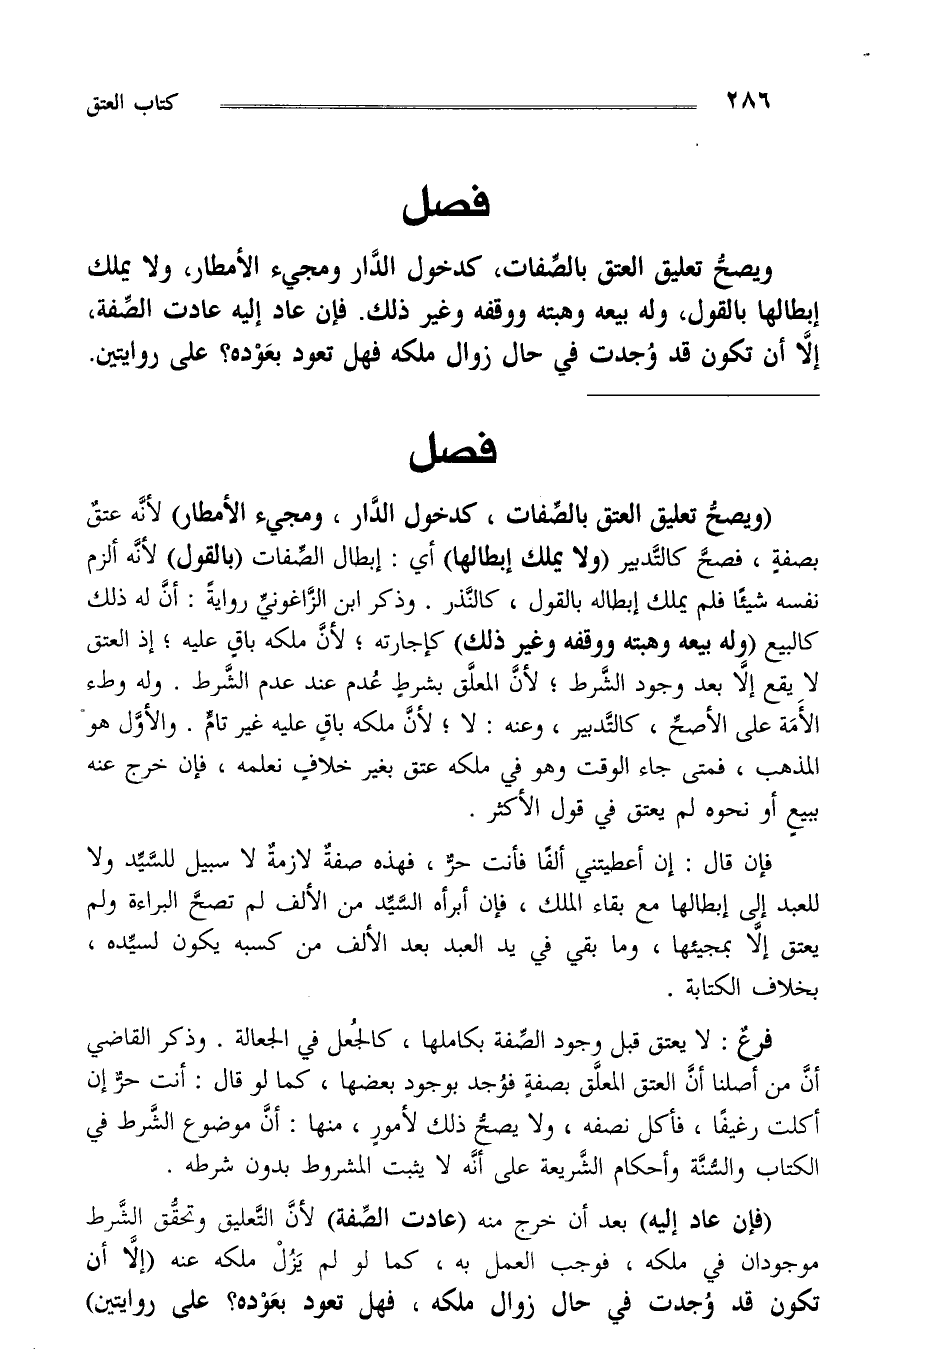 ٢٨٦ كتاب العتق
فصل
ويصحُّ تعليق العتق بالصِّفات، كدخول الدَّار ومجيء الأمطار، ولا يملك
إبطالها بالقول، وله بيعه وهبته ووقفه وغير ذلك. فإن عاد إليه عادت الصِّفة،
إلَّا أن تكون قد وُجدت في حال زوال ملكه فهل تعود بعَوْده؟ على روايتين.
فصل
(ويصحُّ تعليق العتق بالصِّفات ، كدخول الدَّار ، ومجيء الأمطار) لأنَّه عتقٌ
بصفةٍ ، فصحَّ كالتَّدبير (ولا يملك إبطالها) أي : إبطال الصِّفات (بالقول) لأنَّه ألزم
نفسه شيئًا فلم يملك إبطاله بالقول ، كالنَّذر . وذكر ابن الزَّاغونيِّ روايةً : أنَّ له ذلك
كالبيع (وله بيعه وهبته ووقفه وغير ذلك) كإجارته ؛ لأنَّ ملكه باقٍ عليه ؛ إذ العتق
لا يقع إلَّا بعد وجود الشَّرط ؛ لأنَّ المعلَّق بشرطٍ عُدم عند عدم الشَّرط . وله وطء
الأَمَة على الأصحِّ ، كالتَّدبير ، وعنه : لا ؛ لأنَّ ملكه باقٍ عليه غير تامٍّ . والأوَّل هو
المذهب ، فمتى جاء الوقت وهو في ملكه عتق بغير خلافٍ نعلمه ، فإن خرج عنه
ببيعٍ أو نحوه لم يعتق في قول الأكثر .
فإن قال : إن أعطيتني ألفًا فأنت حرٌّ ، فهذه صفةٌ لازمةٌ لا سبيل للسَّيِّد ولا
للعبد إلى إبطالها مع بقاء الملك ، فإن أبرأه السَّيِّد من الألف لم تصحَّ البراءة ولم
يعتق إلَّا بمجيئها ، وما بقي في يد العبد بعد الألف من كسبه يكون لسيِّده ،
بخلاف الكتابة .
فرعٌ : لا يعتق قبل وجود الصِّفة بكاملها ، كالجُعل في الجعالة . وذكر القاضي
أنَّ من أصلنا أنَّ العتق المعلَّق بصفةٍ فوُجد بوجود بعضها ، كما لو قال : أنت حرٌّ إن
أكلت رغيفًا ، فأكل نصفه ، ولا يصحُّ ذلك لأمورٍ ، منها : أنَّ موضوع الشَّرط في
الكتاب والسُّنَّة وأحكام الشَّريعة على أنَّه لا يثبت المشروط بدون شرطه .
(فإن عاد إليه) بعد أن خرج منه (عادت الصِّفة) لأنَّ التَّعليق وتحقُّق الشَّرط
موجودان في ملكه ، فوجب العمل به ، كما لو لم يَزُلْ ملكه عنه (إلَّا أن
تكون قد وُجدت في حال زوال ملكه ، فهل تعود بعَوْده؟ على روايتين)